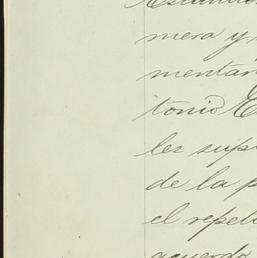 mera y
mentar
tonio E
les sup
de la p
el repet
acuerdo